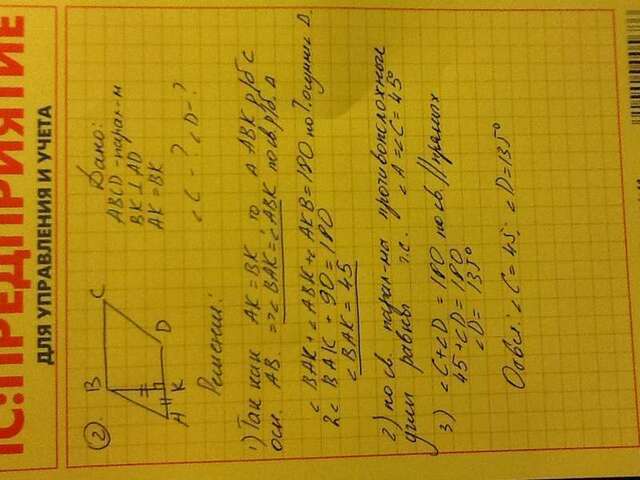 1С:ПРЕДПРИЯТИЕ
ДЛЯ УПРАВЛЕНИЯ И УЧЕТА
2.
Дано:
ABCD - парал-м
BK ⊥ AD
AK = BK
∠C - ? ∠D = ?
B C
A K D
Решение:
1) Так как AK = BK то Δ ABK р/б с
осн. AB => ∠BAK = ∠ABK по св. р/б. Δ
∠BAK + ∠ABK + ∠AKB = 180 по Δ.
2∠BAK + 90 = 180
∠BAK = 45
2) по св. парал-ма противоположные
углы равны т.е. ∠A = ∠C = 45°
3) ∠C + ∠D = 180 по св. // прямых
45 + ∠D = 180
∠D = 135°
Ответ: ∠C = 45°. ∠D = 135°